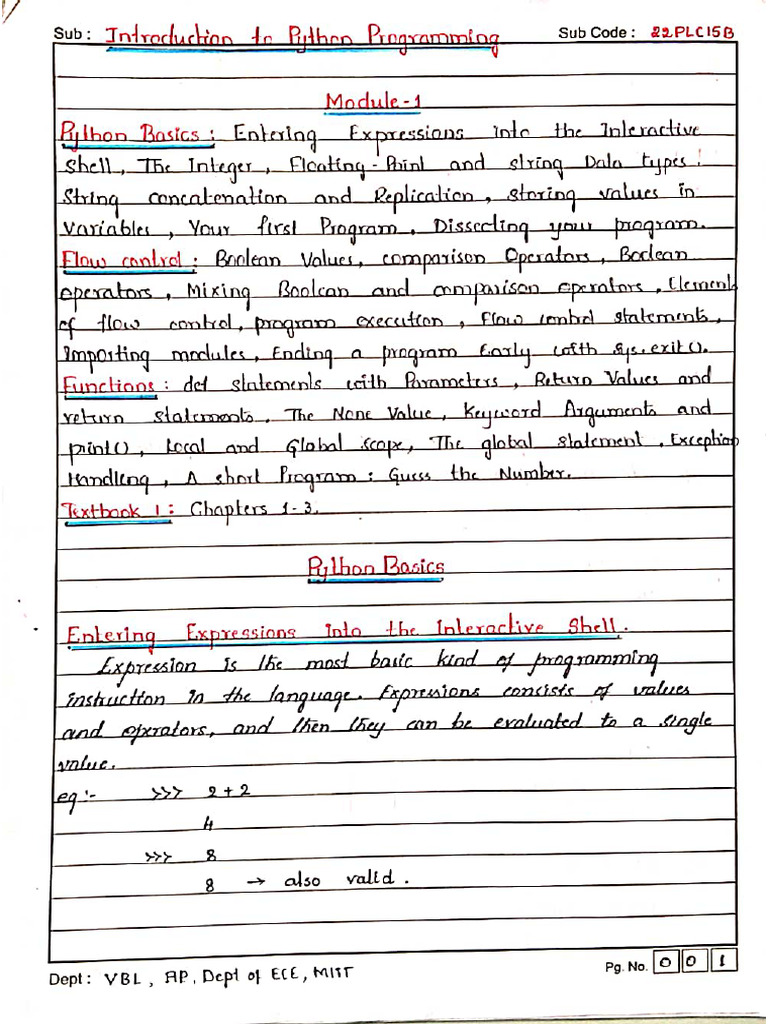 Sub : Introduction to Python Programming Sub Code : 22PLC15B
Module-1
Python Basics : Entering Expressions into the Interactive
Shell, The Integer, Floating-Point and string Data types :
String concatenation and Replication, storing values in
variables, Your first Program, Dissecting your program.
Flow control : Boolean Values, comparison Operators, Boolean
operators, Mixing Boolean and comparison operators, Elements
of flow control, program execution, Flow control statements,
Importing modules, Ending a program Early with sys.exit().
Functions : def statements with Parameters, Return Values and
return statements, The None Value, Keyword Arguments and
print(), Local and Global scope, The global statement, Exception
Handling, A short Program : Guess the Number.
Textbook 1 : Chapters 1-3.
Python Basics
Entering Expressions into the Interactive Shell.
Expression is the most basic kind of programming
instruction in the language. Expressions consists of values
and operators, and then they can be evaluated to a single
value.
eg :- >>> 2 + 2
4
>>> 8
8 → also valid.
Dept : VBL, AP, Dept of ECE, MIST Pg. No. 0 0 1